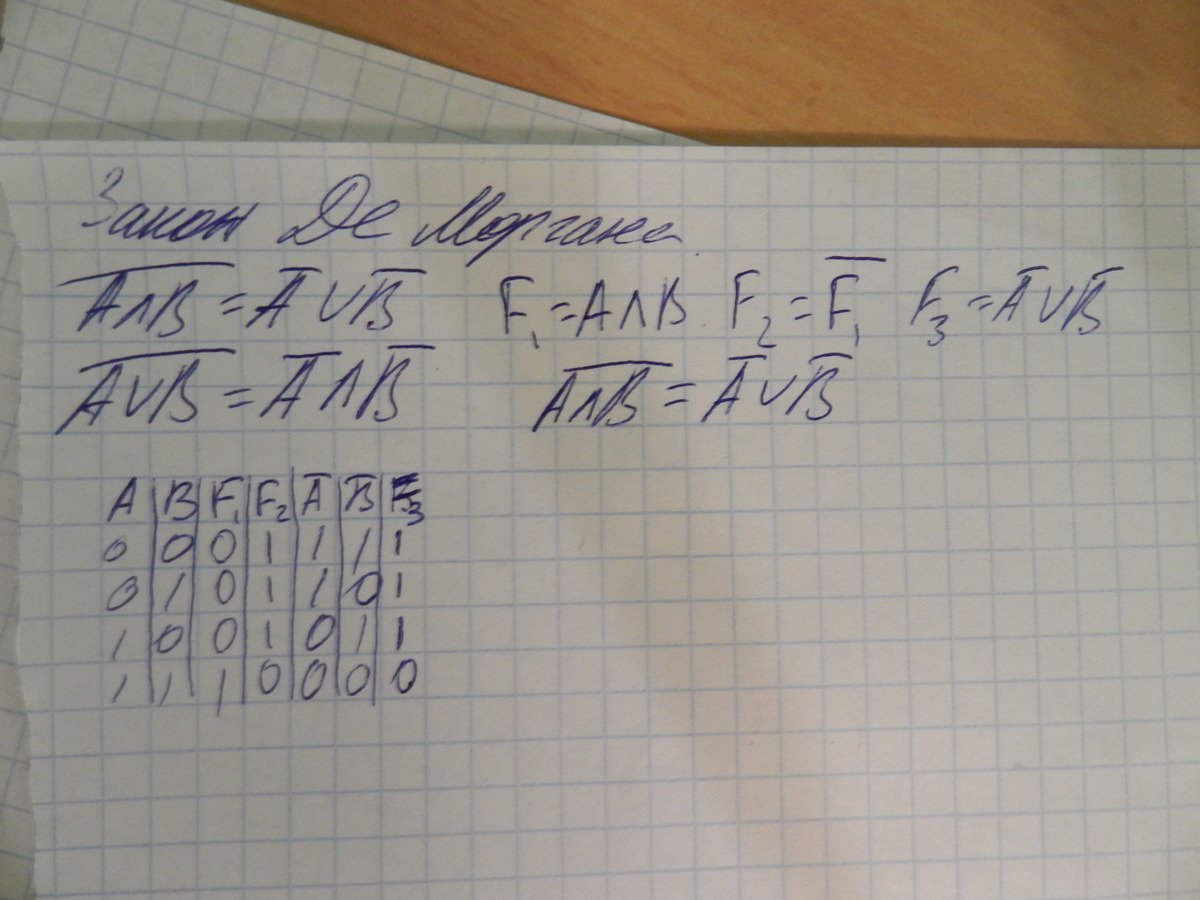 Закон Де Моргана
A̅∧̅B̅ = A̅ ∨ B̅ F₁ = A∧B F₂ = F̅₁ F₃ = A̅∨B̅
A̅∨̅B̅ = A̅ ∧ B̅ A̅∧̅B̅ = A̅ ∨ B̅
A | B | F₁ | F₂ | A̅ | B̅ | F₃
0 | 0 | 0 | 1 | 1 | 1 | 1
0 | 1 | 0 | 1 | 1 | 0 | 1
1 | 0 | 0 | 1 | 0 | 1 | 1
1 | 1 | 1 | 0 | 0 | 0 | 0